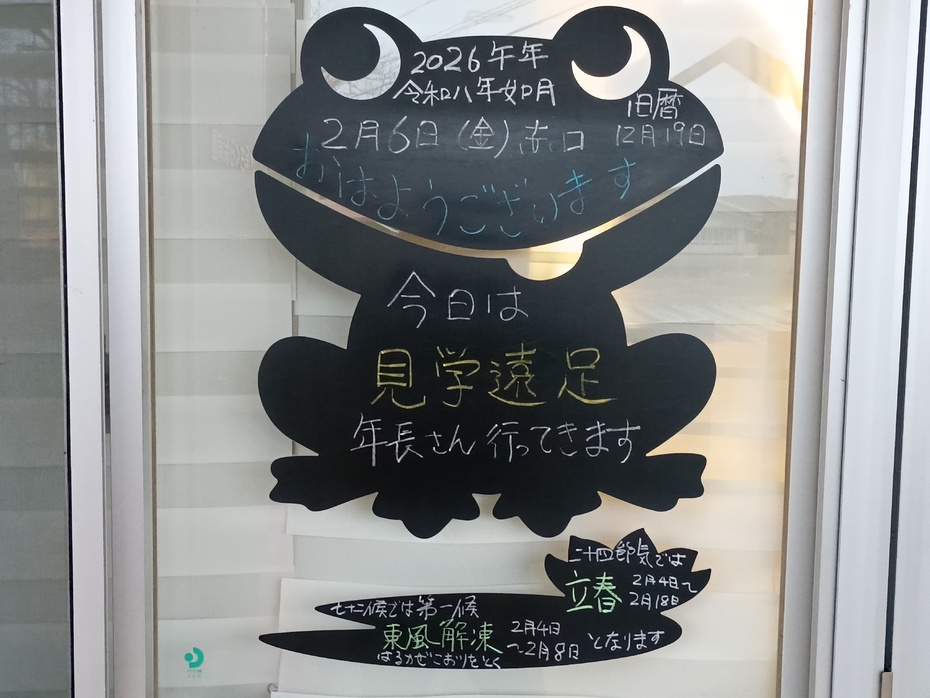 2026午年
令和八年如月
旧暦
12月19日
2月6日(金)赤口
おはようございます
今日は
見学遠足
年長さん行ってきます
二十四節気では
立春 2月4日〜
2月18日
七十二候では第一候
東風解凍 2月4日
〜2月8日 となります
はるかぜこおりをとく